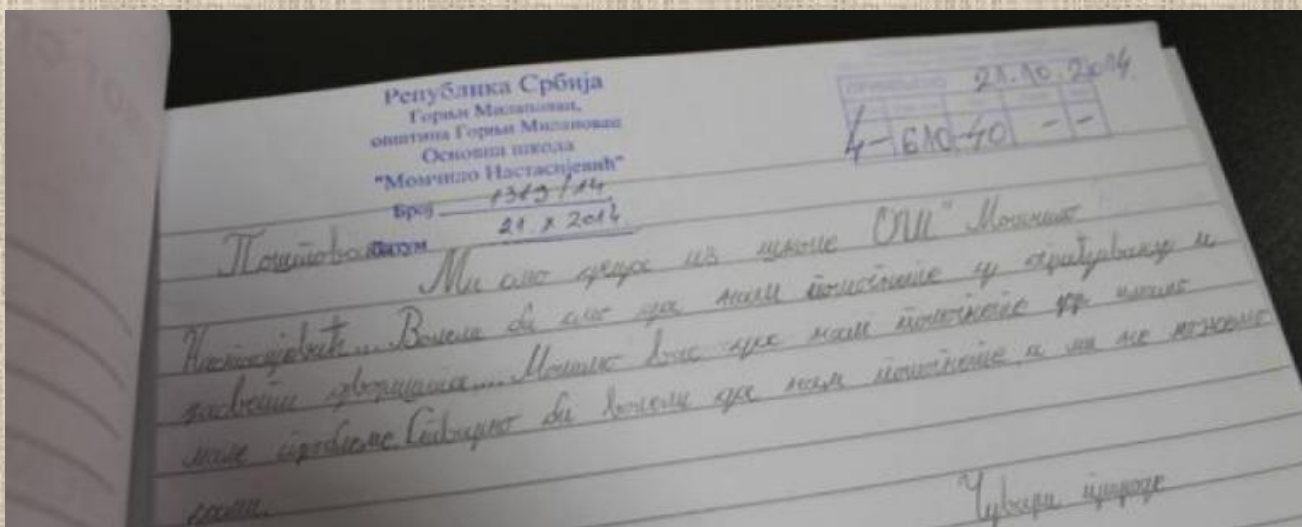 Република Србија
Горњи Милановац,
општина Горњи Милановац
Основна школа
"Момчило Настасијевић"
Број 1319/14
Датум 21 X 2014
21.10.2014
4- 610-40 - -
Поштовани
Ми смо деца из школе ОШ "Момчило
Настасијевић... Волели би смо да нам помогнете у и
дворишта.... Молимо вас да нам помогнете
мале проблеме. Стварно би волели да нам помогнете а ми не можемо
сами.
Чувари природе